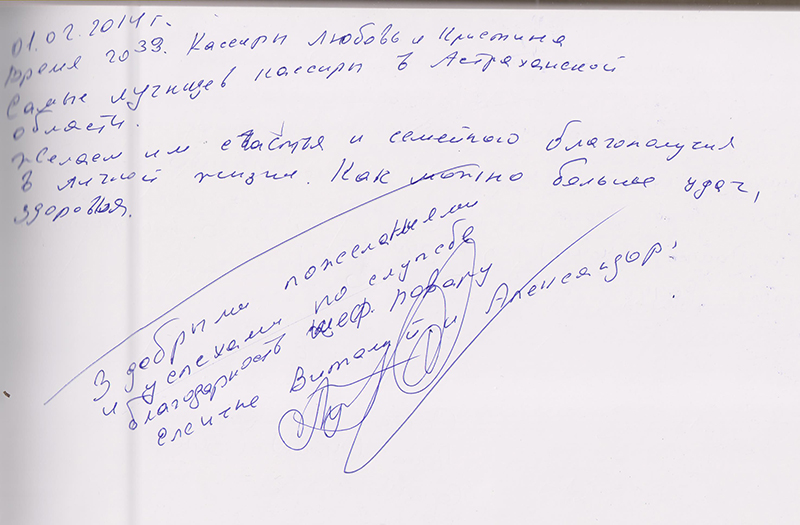 01.02.2014 г.
Время 2033. Кассиры Любовь и Кристина
Самые лучшие кассиры в Астраханской
области.
Желаем им счастья и семейного благополучия
в личной жизни. Как можно больше удач,
здоровья.
З добрыми пожеланиями
и успехами по службе
благодарность шеф. повару
Виталий и Александр.